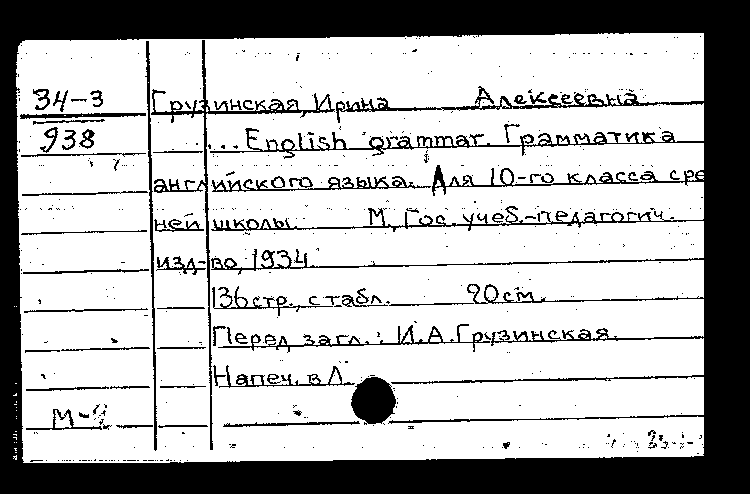 34-3
938
Грузинская, Ирина Алексеевна
...English grammar. Грамматика
английского языка. Для 10-го класса сре
ней школы. М., Гос. учеб.-педагогич.
изд-во, 1934.
136 стр., с табл. 20 см.
Перед загл.: И.А. Грузинская.
Напеч. в Л.